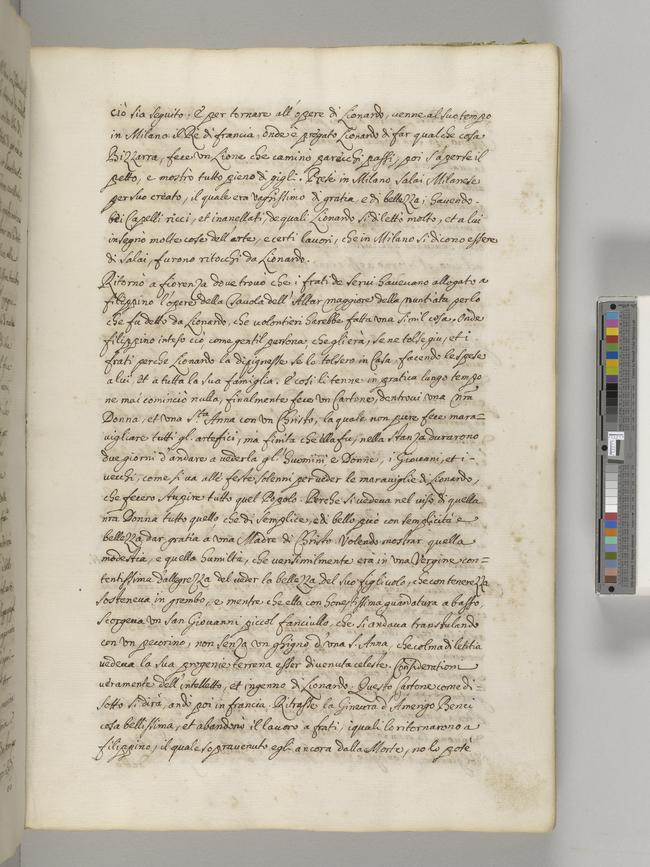 ciò sia seguito. E per tornare all'opere di Lionardo, venne al suo tempo
in Milano il Re di francia, onde e pregato Lionardo di far qualche cosa
Bizzarra, fece un Lione che caminò parecchi passi, poi s'aperse il
petto, e mostrò tutto pieno di gigli. Prese in Milano Salai Milanese
per suo creato, il quale era vaghissimo di gratia e di bellezza, havendo
bei Capelli ricci, et inanellati, de quali Lionardo si dilettò molto, et a lui
insegnò molte cose dell'arte, e certi lavori, che in Milano si dicono essere
di Salai, furono ritocchi da Lionardo.
Ritornò a fiorenza dove trovò che i frati de Servi havevano allogato a
filippino l'opere della Tavola dell'Altar maggiore della Nuntiata, per lo
che fu detto da Lionardo, che volontieri harebbe fatta una simil cosa. Onde
filippino inteso ciò come gentil persona, che gli era, se ne tolse giu, et i
frati perche Lionardo la dipignesse se lo tolsero in Casa, facendo le spese
a lui, et a tutta la sua famiglia. E cosi li tenne in pratica lungo tempo
ne mai cominciò nulla, finalmente fece un Cartone, dentrovi una nra
Donna, et una S.ta Anna con un Christo, la quale non pure fece mara=
vigliare tutti gl'artefici, ma finita che ella fu, nella stanza durarono
due giorni d'andare a vederla gl'huomini e Donne, i Giovani, et i
vecchi, come si va alle feste solenni per veder le maraviglie di Lionardo,
che fecero stupire tutto quel Popolo. Perche si vedeva nel viso di quella
nra Donna tutto quello che di semplice, e di bello può con templicità e
bellezza dar gratia a una Madre di Christo. Volendo mostrar quella
modestia, e quella humiltà, che verisimilmente era in una Vergine con=
tentissima d'allegrezza del veder la bellezza del suo figliuolo, che con tenerezza
sosteneva in grembo, e mentre che ella con honestissima guardatura a basso
scorgeva un San Giovanni piccol fanciullo, che si andava trastulando
con un pecorino, non senza un ghigno d'una S. Anna, che colma di letitia
vedeva la sua progenie terrena esser divenuta celeste. Considerationi
veramente dell'intelletto, et ingenno di Lionardo. Questo Cartone come di=
sotto si dirà, andò poi in francia. Ritrasse la Ginevra d'Amerigo Benci
cosa bellissima, et abandonò il lavoro a frati, i quali lo ritornarono a
filippino, il quale sopravenuto egli ancora dalla Morte, no lo potè